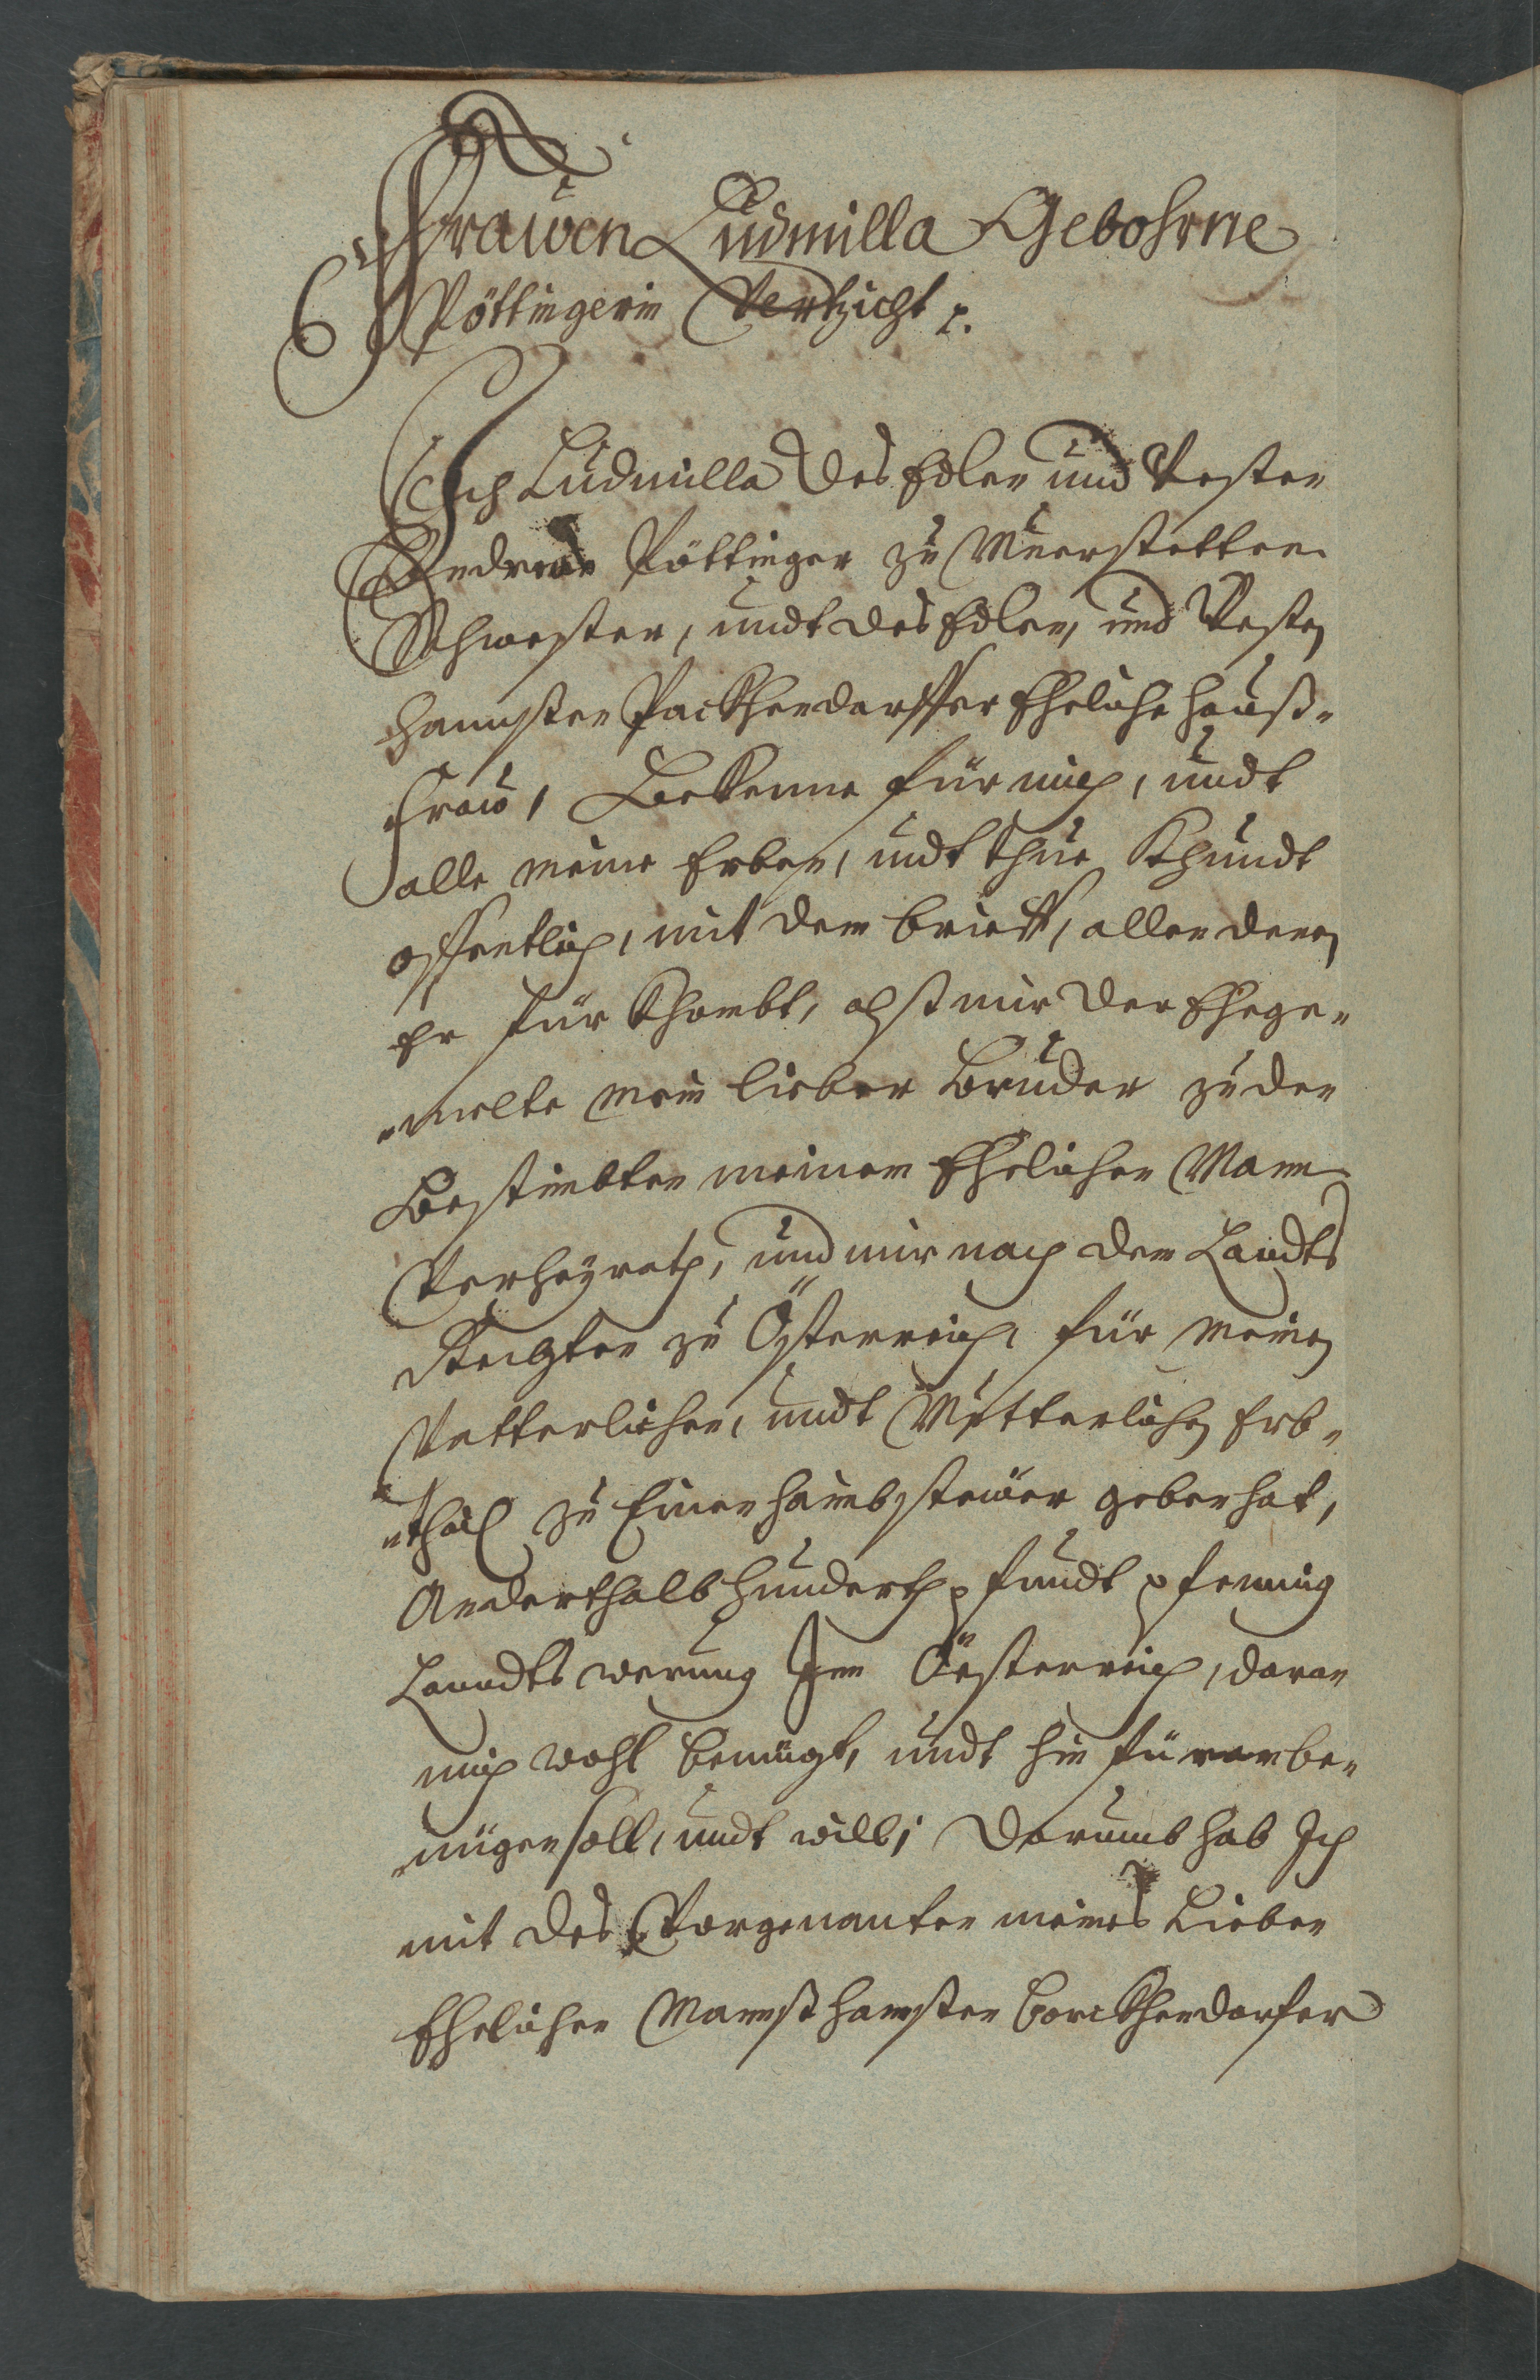 Frawen Ludmilla Gebohrne
Pöttingerin Vertzicht p.
Ich Ludmilla des Edlen und Vesten
Andreae Pöttinger zu Muerstetten
Schwester, undt des Edlen, und Vesten
Hannsten Packhendorffer Eheliche hauß-
fraw, Bekenne für mich, undt
alle meine Erben, undt thue Khundt
offentlich, mit dem brieff, allen denen
Er für Khombt, alß mir der Ehege-
-melte mein lieber Bruder zu den
Bestimbten meinem Ehelichen Mann
Verheyrath, und mir nach dem Landts
Rechten zu Österreich, für meinen
Vätterlichen, undt Mütterlichen Erb-
-thail zu Einer haimbsteüer geben hat,
Anderthalb hunderth pfundt pfenning
Lanndts werung Inn Öesterreich, daran
mich wohl benügt, undt hin für an be-
-nügen soll, undt will; Darumb hab Ich
mit des Vorgenanten meines Lieben
Ehelichen Mannß hannsten backhendorfer